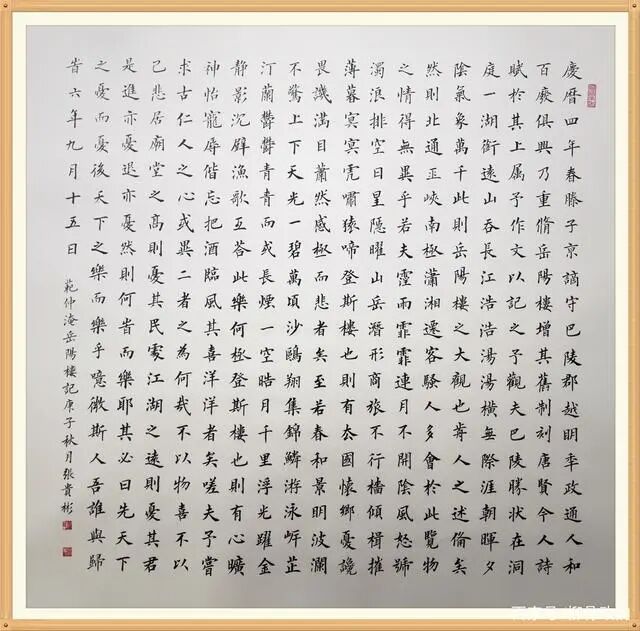 慶曆四年春滕子京謫守巴陵郡越明秊政通人和
百廢俱興乃重脩岳陽樓增其舊制刻唐賢今人詩
賦於其上属予作文以記之予觀夫巴陵勝狀在洞
庭一湖銜遠山吞長江浩浩湯湯橫無際涯朝暉夕
陰氣象萬千此則岳陽樓之大觀也前人之述備矣
然則北通巫峽南極瀟湘遷客騷人多會於此覽物
之情得無異乎若夫霪雨霏霏連月不開陰風怒號
濁浪排空日星隱曜山岳潛形商旅不行檣傾楫摧
薄暮冥冥虎嘯猿啼登斯樓也則有去國懷鄉憂讒
畏譏滿目蕭然感極而悲者矣至若春和景明波瀾
不驚上下天光一碧萬頃沙鷗翔集錦鱗游泳岸芷
汀蘭鬱鬱青青而或長煙一空皓月千里浮光躍金
靜影沉璧漁歌互答此樂何極登斯樓也則有心曠
神怡寵辱偕忘把酒臨風其喜洋洋者矣嗟夫予嘗
求古仁人之心或異二者之為何哉不以物喜不以
己悲居廟堂之高則憂其民處江湖之遠則憂其君
是進亦憂退亦憂然則何旹而樂耶其必曰先天下
之憂而憂後天下之樂而樂乎噫微斯人吾誰與歸
旹六年九月十五日
範仲淹岳陽樓記庚子秋月張貴彬